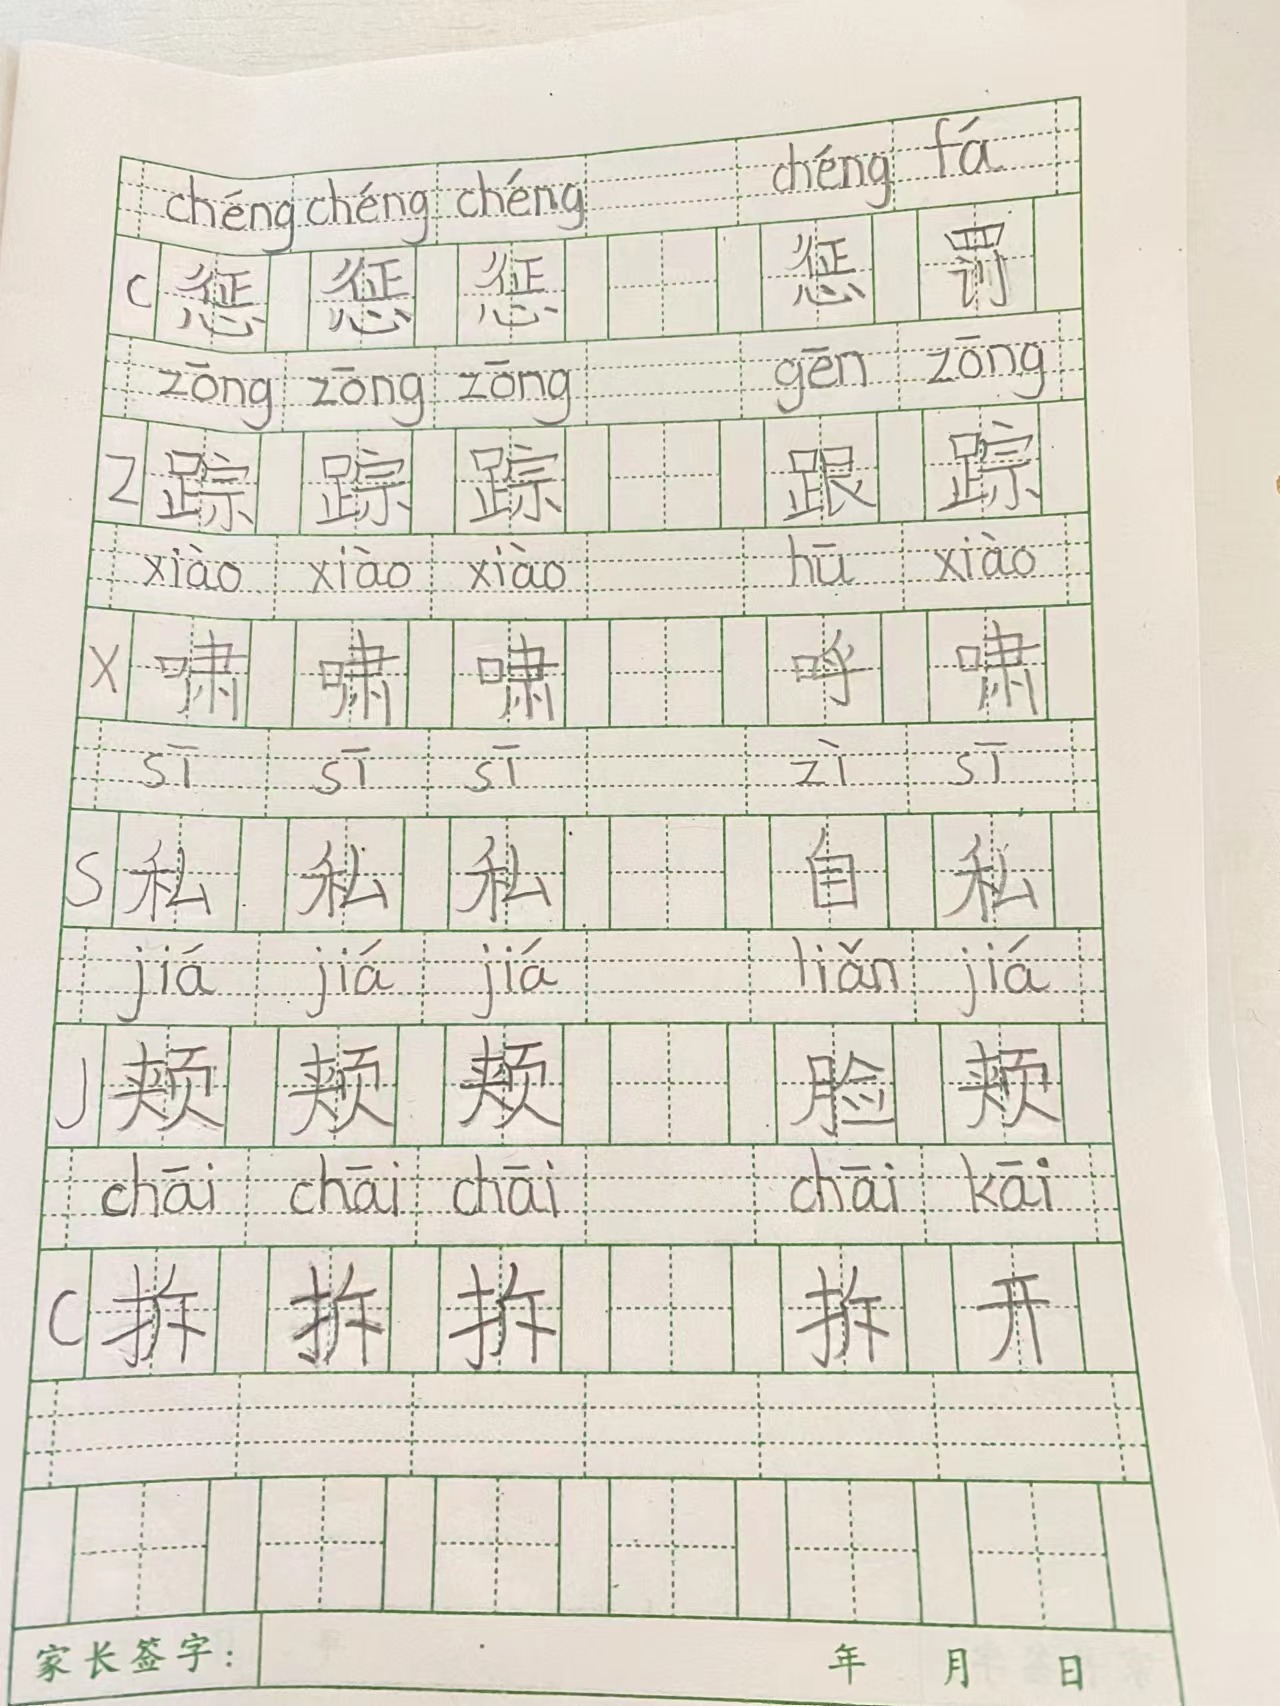 chéng chéng chéng chéng fá
C 惩 惩 惩 惩 罚
zōng zōng zōng gēn zōng
Z 踪 踪 踪 跟 踪
xiào xiào xiào hū xiào
X 啸 啸 啸 呼 啸
sī sī sī zì sī
S 私 私 私 自 私
jiá jiá jiá liǎn jiá
J 颊 颊 颊 脸 颊
chāi chāi chāi chāi kāi
C 拆 拆 拆 拆 开
家长签字： 年 月 日